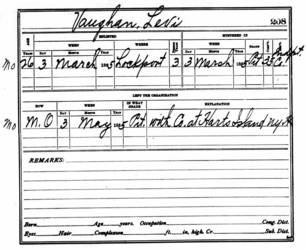 Vaughan, Levi
ENLISTED MUSTERED IN
WHEN WHERE WHEN
DAY MONTH YEAR DAY MONTH YEAR GRADE
Mo 26 3 March 1865 Lockport 3 3 March 1865 Pvt
LEFT THE ORGANIZATION
HOW WHEN IN WHAT GRADE EXPLANATION
DAY MONTH YEAR
Mo M.O 3 May 1865 Pvt. with Co. at Harts Island Ny
REMARKS:
Born Age years. Occupation Cong. Dist.
Eyes Hair Complexion ft. in. high, Co. Sub. Dist.